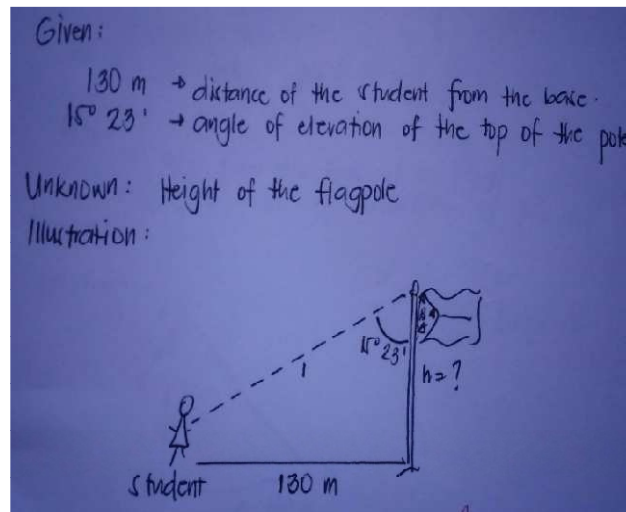 Given:
130 m → distance of the student from the base.
15° 23' → angle of elevation of the top of the pole
Unknown: Height of the flagpole
Illustration:
15° 23'
h = ?
student
130 m